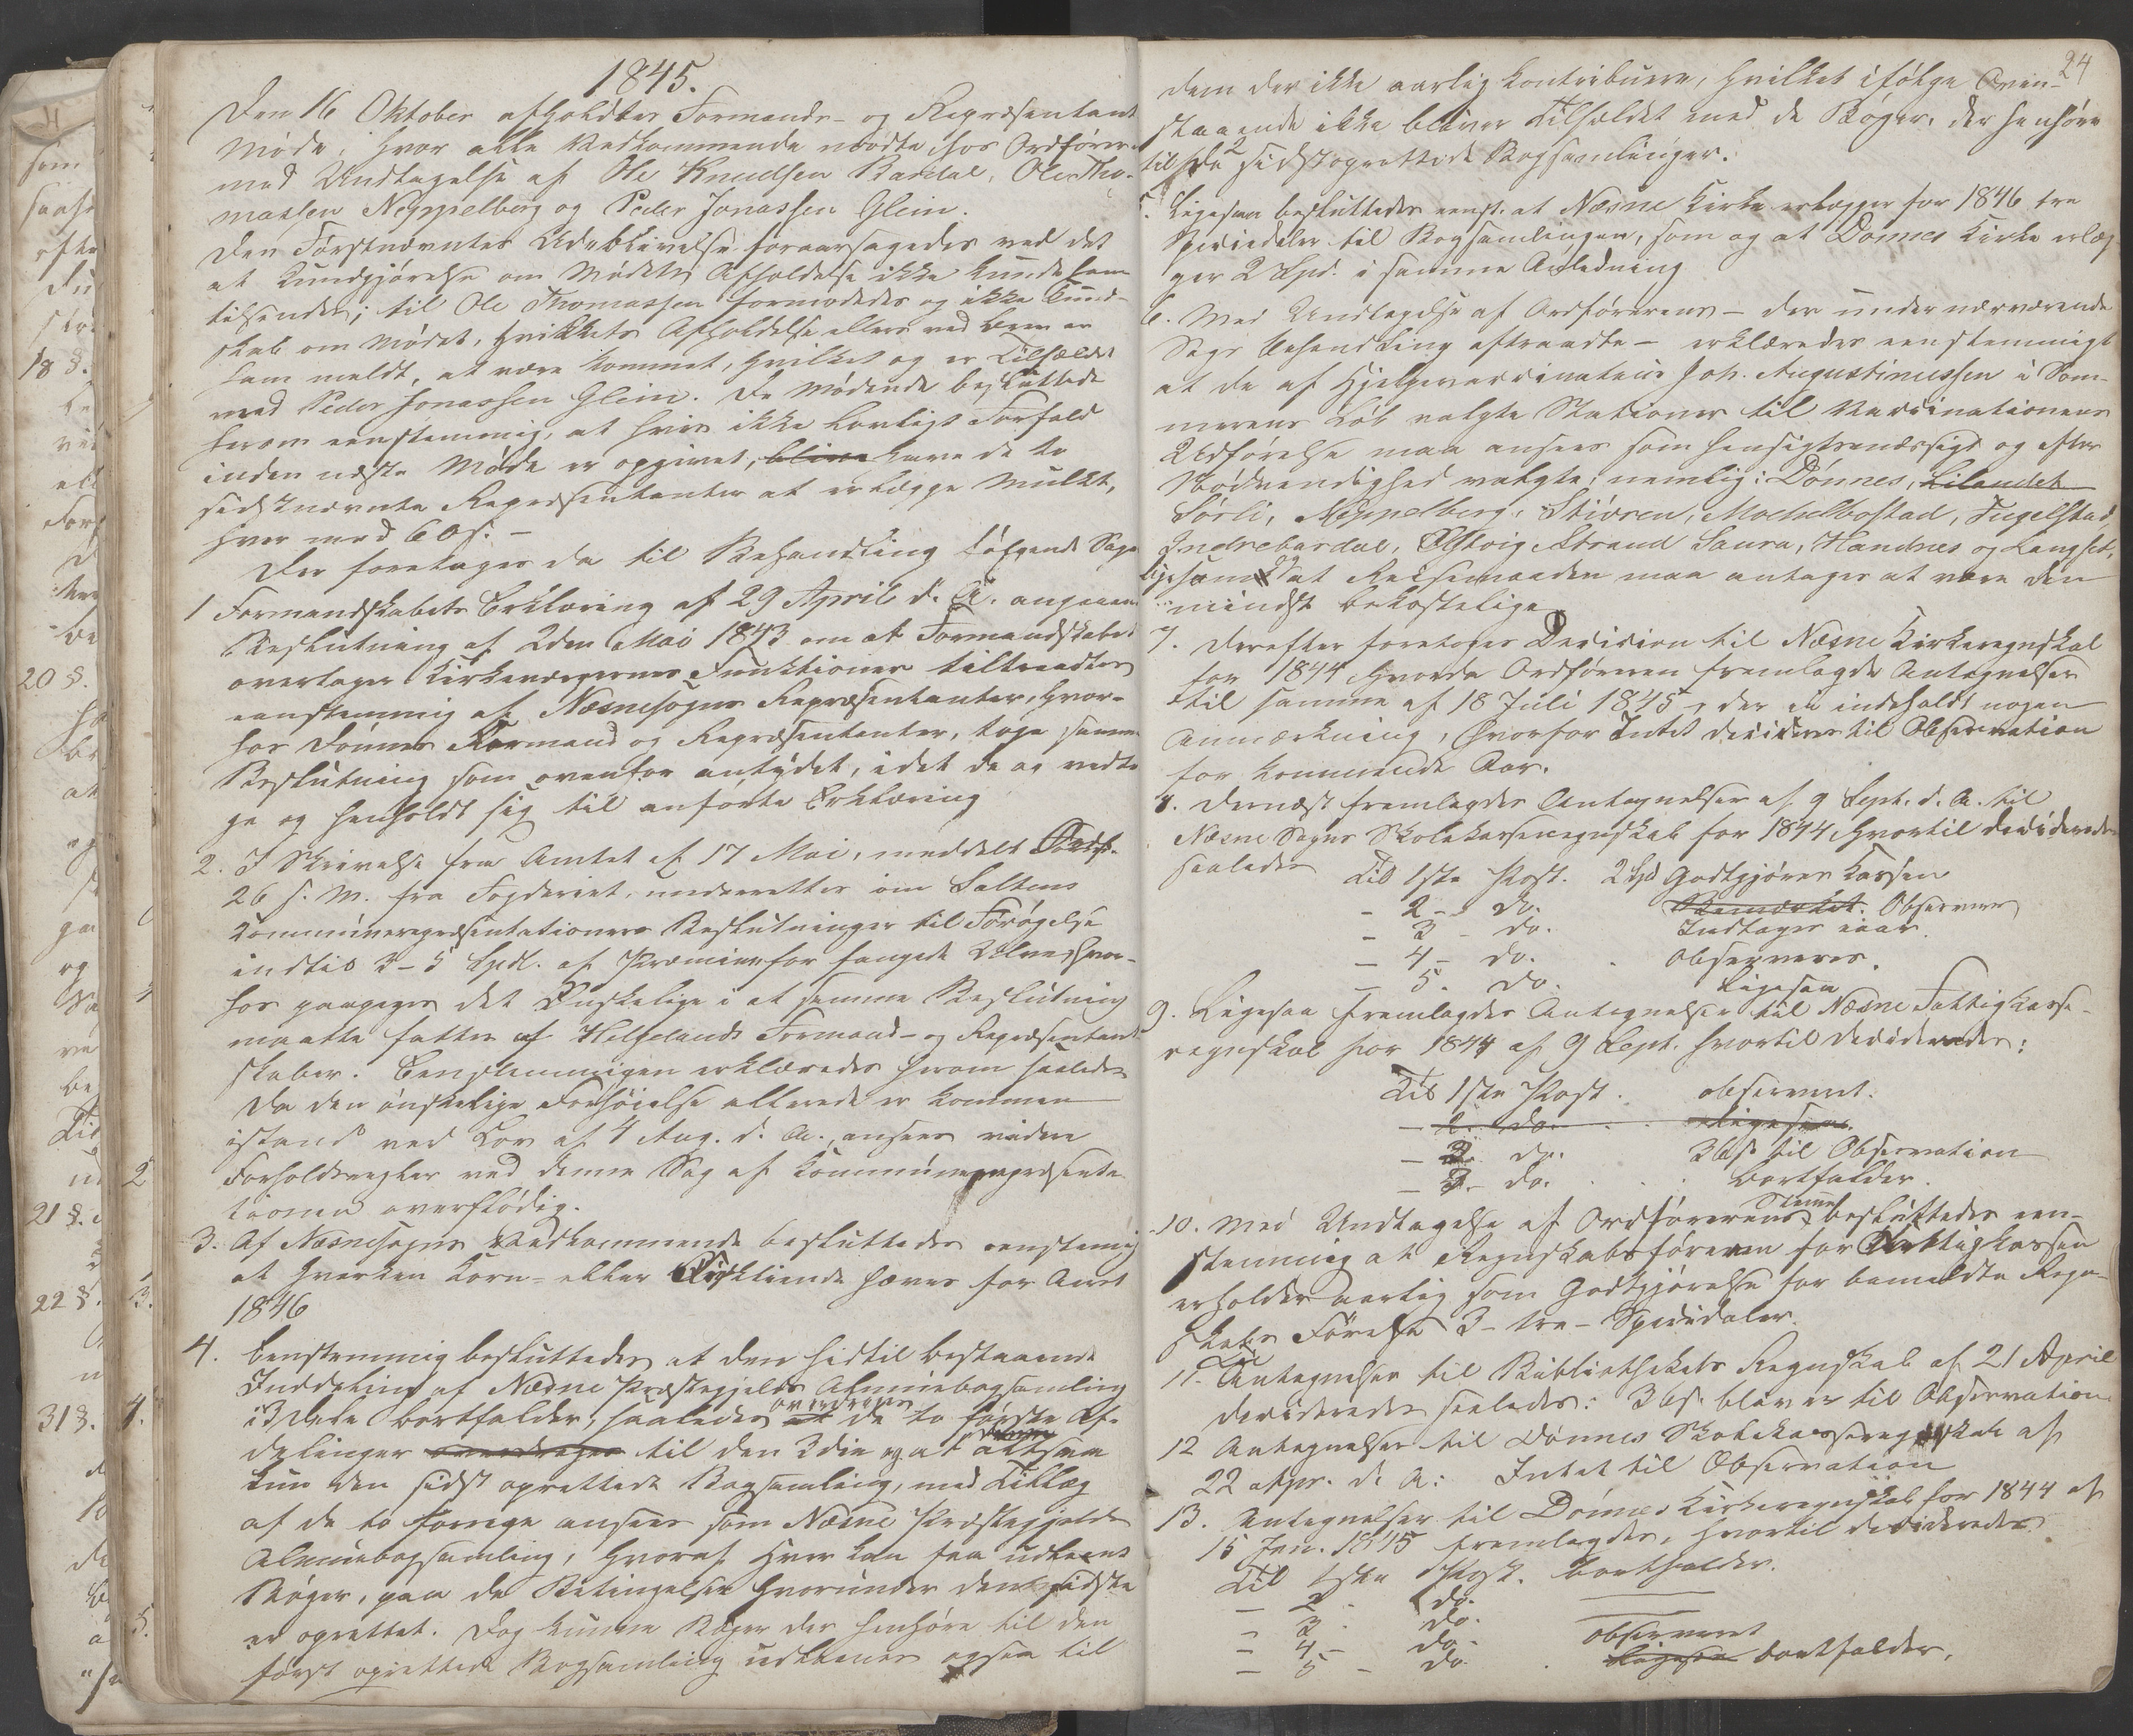 1845.
Den 16 Oktober afholdtes Formands- og Repræsentant
Møde, hvor alle Vedkommende mødte hos Ordfører
med Undtagelse af Ole Knudsen Bardal, Ole Tho-
massen Neppelberg og Peder Jonassen Glein.
Den Førstnævntes Udeblivelse foraarsagedes ved det
at Kundgjørelse om Mødets Afholdelse ikke kunde ham
tilsendes; til Ole Thomassen formodedes og ikke Kund-
skab om Mødet, hvilkets Afholdelse ellers ved
ham meldt, at være kommet, hvilket og er Tilfældet
med Peder Jonassen Glein. De Mødende besluttede
herom eenstemmig, at hvis ikke lovligt Forfald
inden næste Møde er opgivet, blive have de to
sidstnævnte Repræsentanter at erlægge Mulkt,
hver med 60 s. -
Der foretages da til Behandling følgende Sager
1 Formandskabets Erklæring af 29 April d. A. angaaende
Beslutning af 2den Mai 1843 om at Formandskabet
overtager Kirkeværgernes Funktioner tiltraadtes
eenstemmig af Næsnesogns Repræsentanter, hvor-
hos Dønnes Formænd og Repræsentanter, tage samme
Beslutning som ovenfor antydet, idet de og vedto
ge og henholdt sig til anførte Erklæring
2. I Skrivelse fra Amtet af 17 Mai, meddelt
26 s. M. fra Fogderiet, underrettes om Saltens
Kommunerepræsentationers Beslutninger til Forøgelse
indtil 3-5 Spdl. af Præmien for fangede Ulve, hvor-
hos paapeges det Ønskelige i at samme Beslutning
maatte fattes af Helgelands Formand- og Repræsentant
skaber. Eenstemmigen erklæredes herom saaledes
Da den ønskelige Forhøielse allerede er kommen
istand ved Lov af 4 Aug. d. A., ansees videre
Forholdsregler ved denne Sag af Kommunerepræsenta
tionen overflødig.
3. Af Næsnesogns Vedkommende besluttedes eenstemmig
at hverken Korn- eller Fisktiende hæves for Aaret
1846
4. Eenstemmig besluttedes at den hidtil bestaaende
Inddeling af Næsne Præstegjelds Almuebogsamling
i 3 Dele bortfalder, saaledes at overdrages de to første Af-
delinger overdrages til den 3die og at altsaa
kun den sidst oprettede Bogsamling, med Tillæg
af de to forrige ansees som Næsne Præstegjelds
Almuebogsamling, hvoraf Hver kan faa udlaant
Bøger, paa de Betingelser hvorunder den sidste
er oprettet. Dog kunne Bøger der henhøre til den
først oprettede Bogsamling udlaanes ogsaa til
24
dem der ikke aarlig kontribuere, hvilket ifølge Oven-
staaende ikke bliver Tilfældet med de Bøger, der henhøre
til de 2 sidstoprettede Bogsamlinger.
5. Ligesaa besluttedes eenst. at Næsne Kirke erlægger for 1846 tre
Speciedaler til Bogsamlingen, som og at Dønnes Kirke erlæg
ger 2 Spd. i samme Anledning
6. Med Undtagelse af Ordføreren - der under nærværende
Sags Behandling aftraadte - erklæredes eenstemmigt
at de af Hjelpevaccinateur Joh. Augustinussen i Som-
merens Løb valgte Stationer til Vaccinationens
Udførelse maa ansees som hensigtsmæssige og efter
Nødvendighed valgte, nemlig: Dønnes,
Sørli, Neppelberg, Stivren, Machelbostad, Fugelstad,
Indrebardal, Alsvig, Strand Saura, Handnes og Langset,
ligesom at Reisemaaden maa antages at være den
mindst bekostelige
7. Derefter foretoges Decision til Næsne Kirkeregnskab
for 1844 hvorda Ordføreren fremlagde Antegnelser
til samme af 18 Juli 1845, der ei indeholdt nogen
Anmærkning, hvorfor Intet decideres til Observation
for kommende Aar.
8. Dernæst fremlagdes Antegnelser af 9 Sept. d. A. til
Næsne Sogns Skolekasseregnskab for 1844, hvortil decideredes
saaledes Til 1ste Post. 2 Spd Godtgjøres Kassen
- 2 - do. Bemærket. Observeres
- 3 - do. Indtages iaar
- 4 - do. Observeres.
- 5. do. Ligesaa
9. Ligesaa fremlagdes Antegnelser til Næsne Fattigkasse-
regnskab for 1844 af 9 Sept. hvortil decideredes:
Til 1ste Post. observeret.
- 2. do. ligesaa.
- 2. do. 36 s. til Observation
- 3. do. bortfalder.
10. Med Undtagelse af Ordførerens Stemme besluttedes een-
stemmig at Regnskabsføreren for Fattigkassen
erholder aarlig som Godtgjørelse for bemeldte Regn-
skabs Førelse 3 - tre - Speciedaler.
11. Til Antegnelser til Bibliothekets Regnskab af 21 April
decideredes saaledes: 36 s. bliver til Observation
12 Antegnelser til Dønnes Skolekasseregnskab af
22 Apr. d. A: Intet til Observation
13. Antegnelser til Dønnes Kirkeregnskab for 1844 af
15 Jan. 1845 fremlagdes, hvortil decideredes
Til 1ste Post. bortfalder.
- 2. do.
- 3. do.
- 4 - do. observeret
- 5 - do. ligesaa bortfalder.